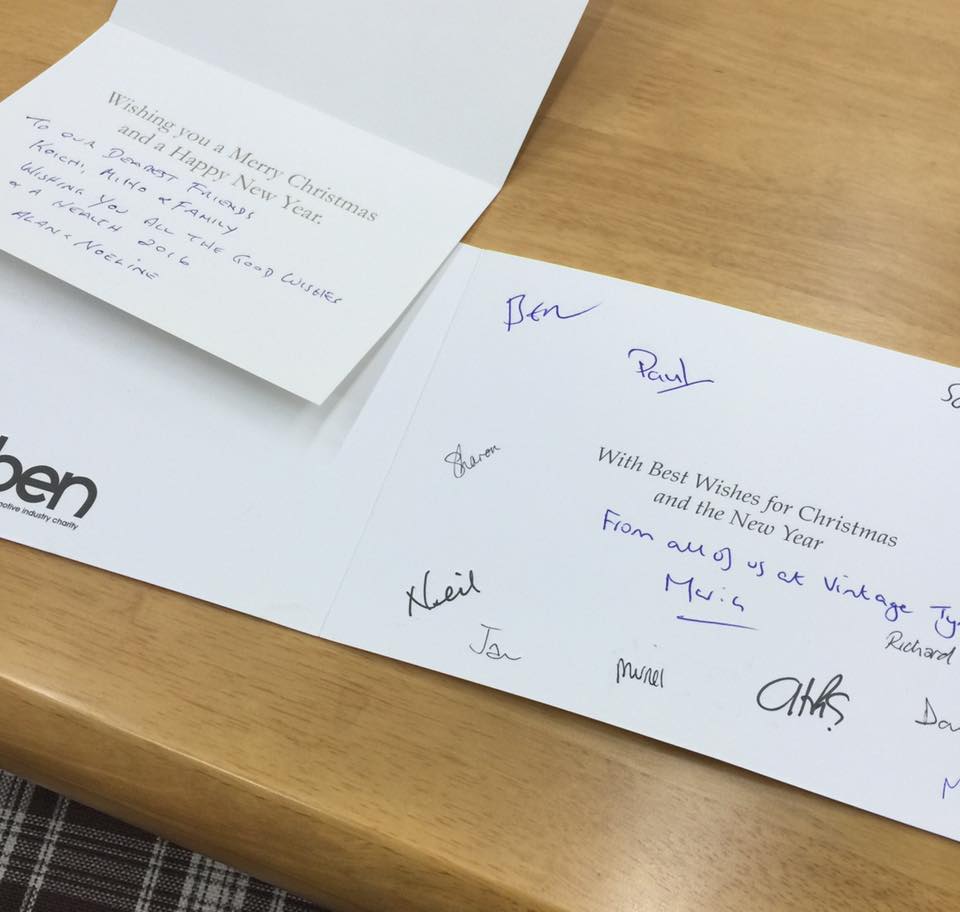 Wishing you a Merry Christmas
and a Happy New Year.
TO OUR DEAREST FRIENDS
KOICHI, MIHO & FAMILY
WISHING YOU ALL THE GOOD WISHES
& A HEALTH 2016
ALAN & NOELINE
ben
motive industry charity
Ben
Paul
Sharon
With Best Wishes for Christmas
and the New Year
From all of us at Vintage Ty
Maria
Richard
Neil
Jan
Muriel